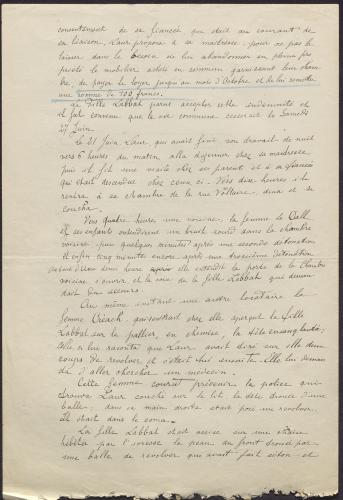 consentement de sa fiancée qui était au courant de
sa liaison, Laur proposa à sa maîtresse, pour ne pas la
laisser dans le besoin de lui abandonner en pleine pro
priété le mobilier acheté en commun garnissant leur cham
bre, de payer le loyer jusqu'au mois d'Octobre et de lui remettre
une somme de 100 francs.
La fille Labbat parut accepter cette indemnité et
il fut convenu que la vie commune cesserait le Samedi
27 Juin.
Le 21 Juin Laur qui avait fini son travail de nuit
vers 6 heures du matin, alla déjeuner chez sa maîtresse
puis il fit une visite chez ses parents et à sa fiancée
qui était descendue chez ceux-ci. Vers dix heures il
rentra à sa chambre de la rue Voltaire, dina et se
coucha.
Vers quatre heures une voisine, la femme Le Gall
et ses enfants entendirent un bruit sourd dans la chambre
voisine puis quelques minutes après une seconde détonation
et enfin cinq minutes encore après une troisième détonation
d'une demi heure après elle entendit la porte de la chambre
voisine s'ouvrir et la voix de la fille Labbat qui
Au même instant une autre locataire la
femme Créach, qui rentrait chez elle aperçut la fille
Labbat sur le pallier, en chemise, la tête ensanglantée;
Elle lui raconta que Laur avait tiré sur elle deux
coups de revolver et s'était tué ensuite. Elle lui deman
da d'aller chercher un médecin.
Cette femme courut prévenir la police qui
trouva Laur couché sur le lit la tête trouée d'une
balle; dans sa main droite était posé un revolver.
Il était dans le coma.
La fille Labbat était assise sur une chaise
hébétée par l'ivresse la peau du front trouée par
une balle de revolver qui avait fait séton et